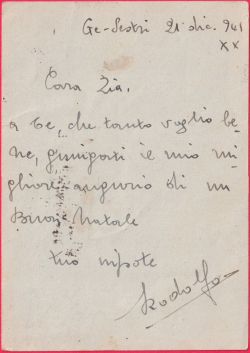 Ge-Sestri 21 dic. 941
XX
Cara Zia,
a te, che tanto voglio be-
ne, giungati il mio mi-
gliore augurio di un
Buon Natale
tuo nipote
Rodolfo